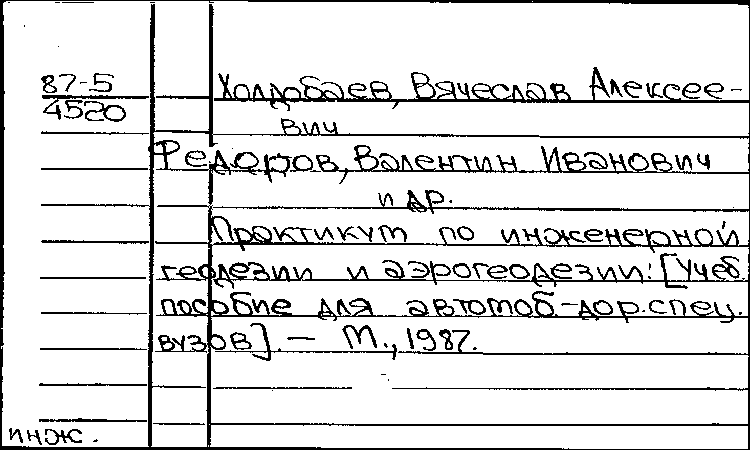 87-5
4520
Холдобаев, Вячеслав Алексее-
вич
Федоров, Валентин Иванович
и др.
Практикум по инженерной
геодезии и аэрогеодезии: [Учеб.
пособие для автомоб-дор. спец.
вузов]. — М., 1987.
инж.